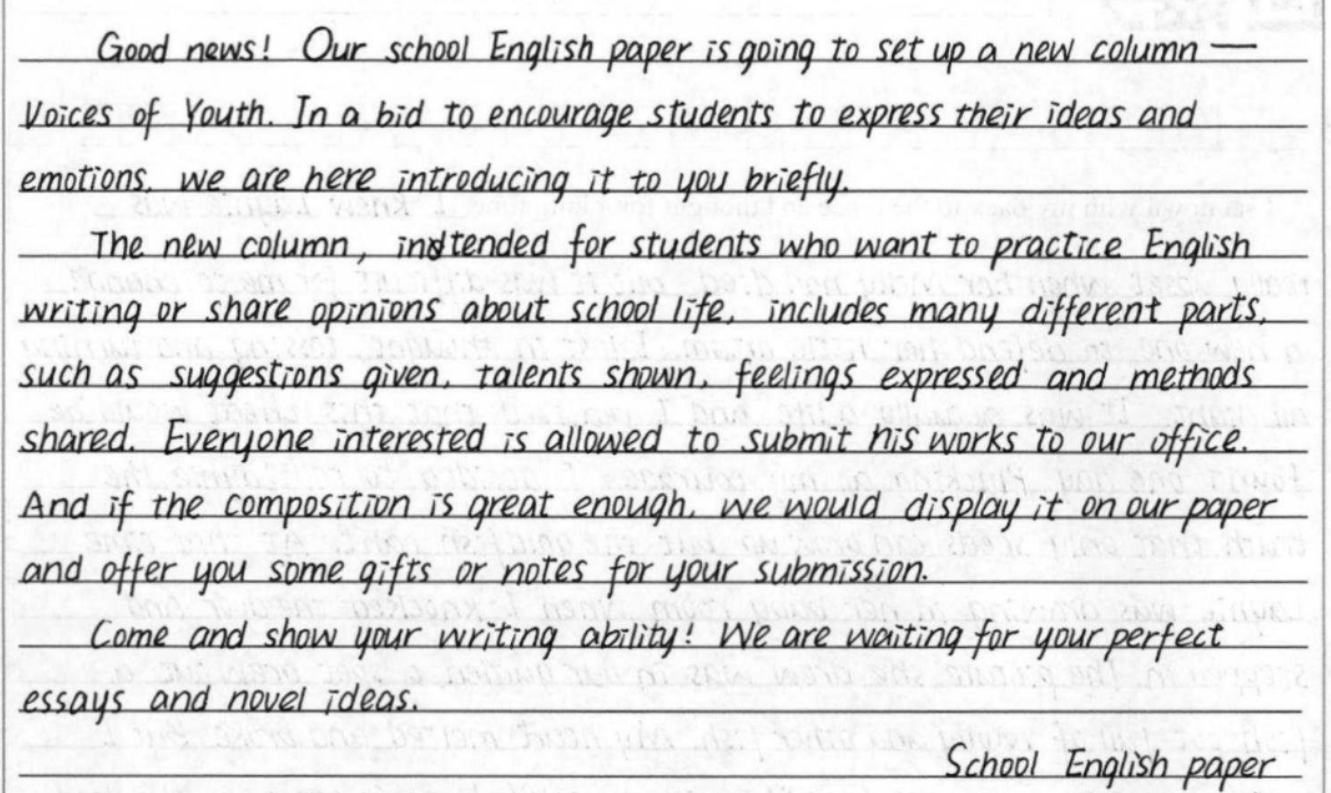 Good news! Our school English paper is going to set up a new column —
Voices of Youth. In a bid to encourage students to express their ideas and
emotions, we are here introducing it to you briefly.
The new column, intended for students who want to practice English
writing or share opinions about school life, includes many different parts,
such as suggestions given, talents shown, feelings expressed and methods
shared. Everyone interested is allowed to submit his works to our office.
And if the composition is great enough, we would display it on our paper
and offer you some gifts or notes for your submission.
Come and show your writing ability! We are waiting for your perfect
essays and novel ideas.
School English paper